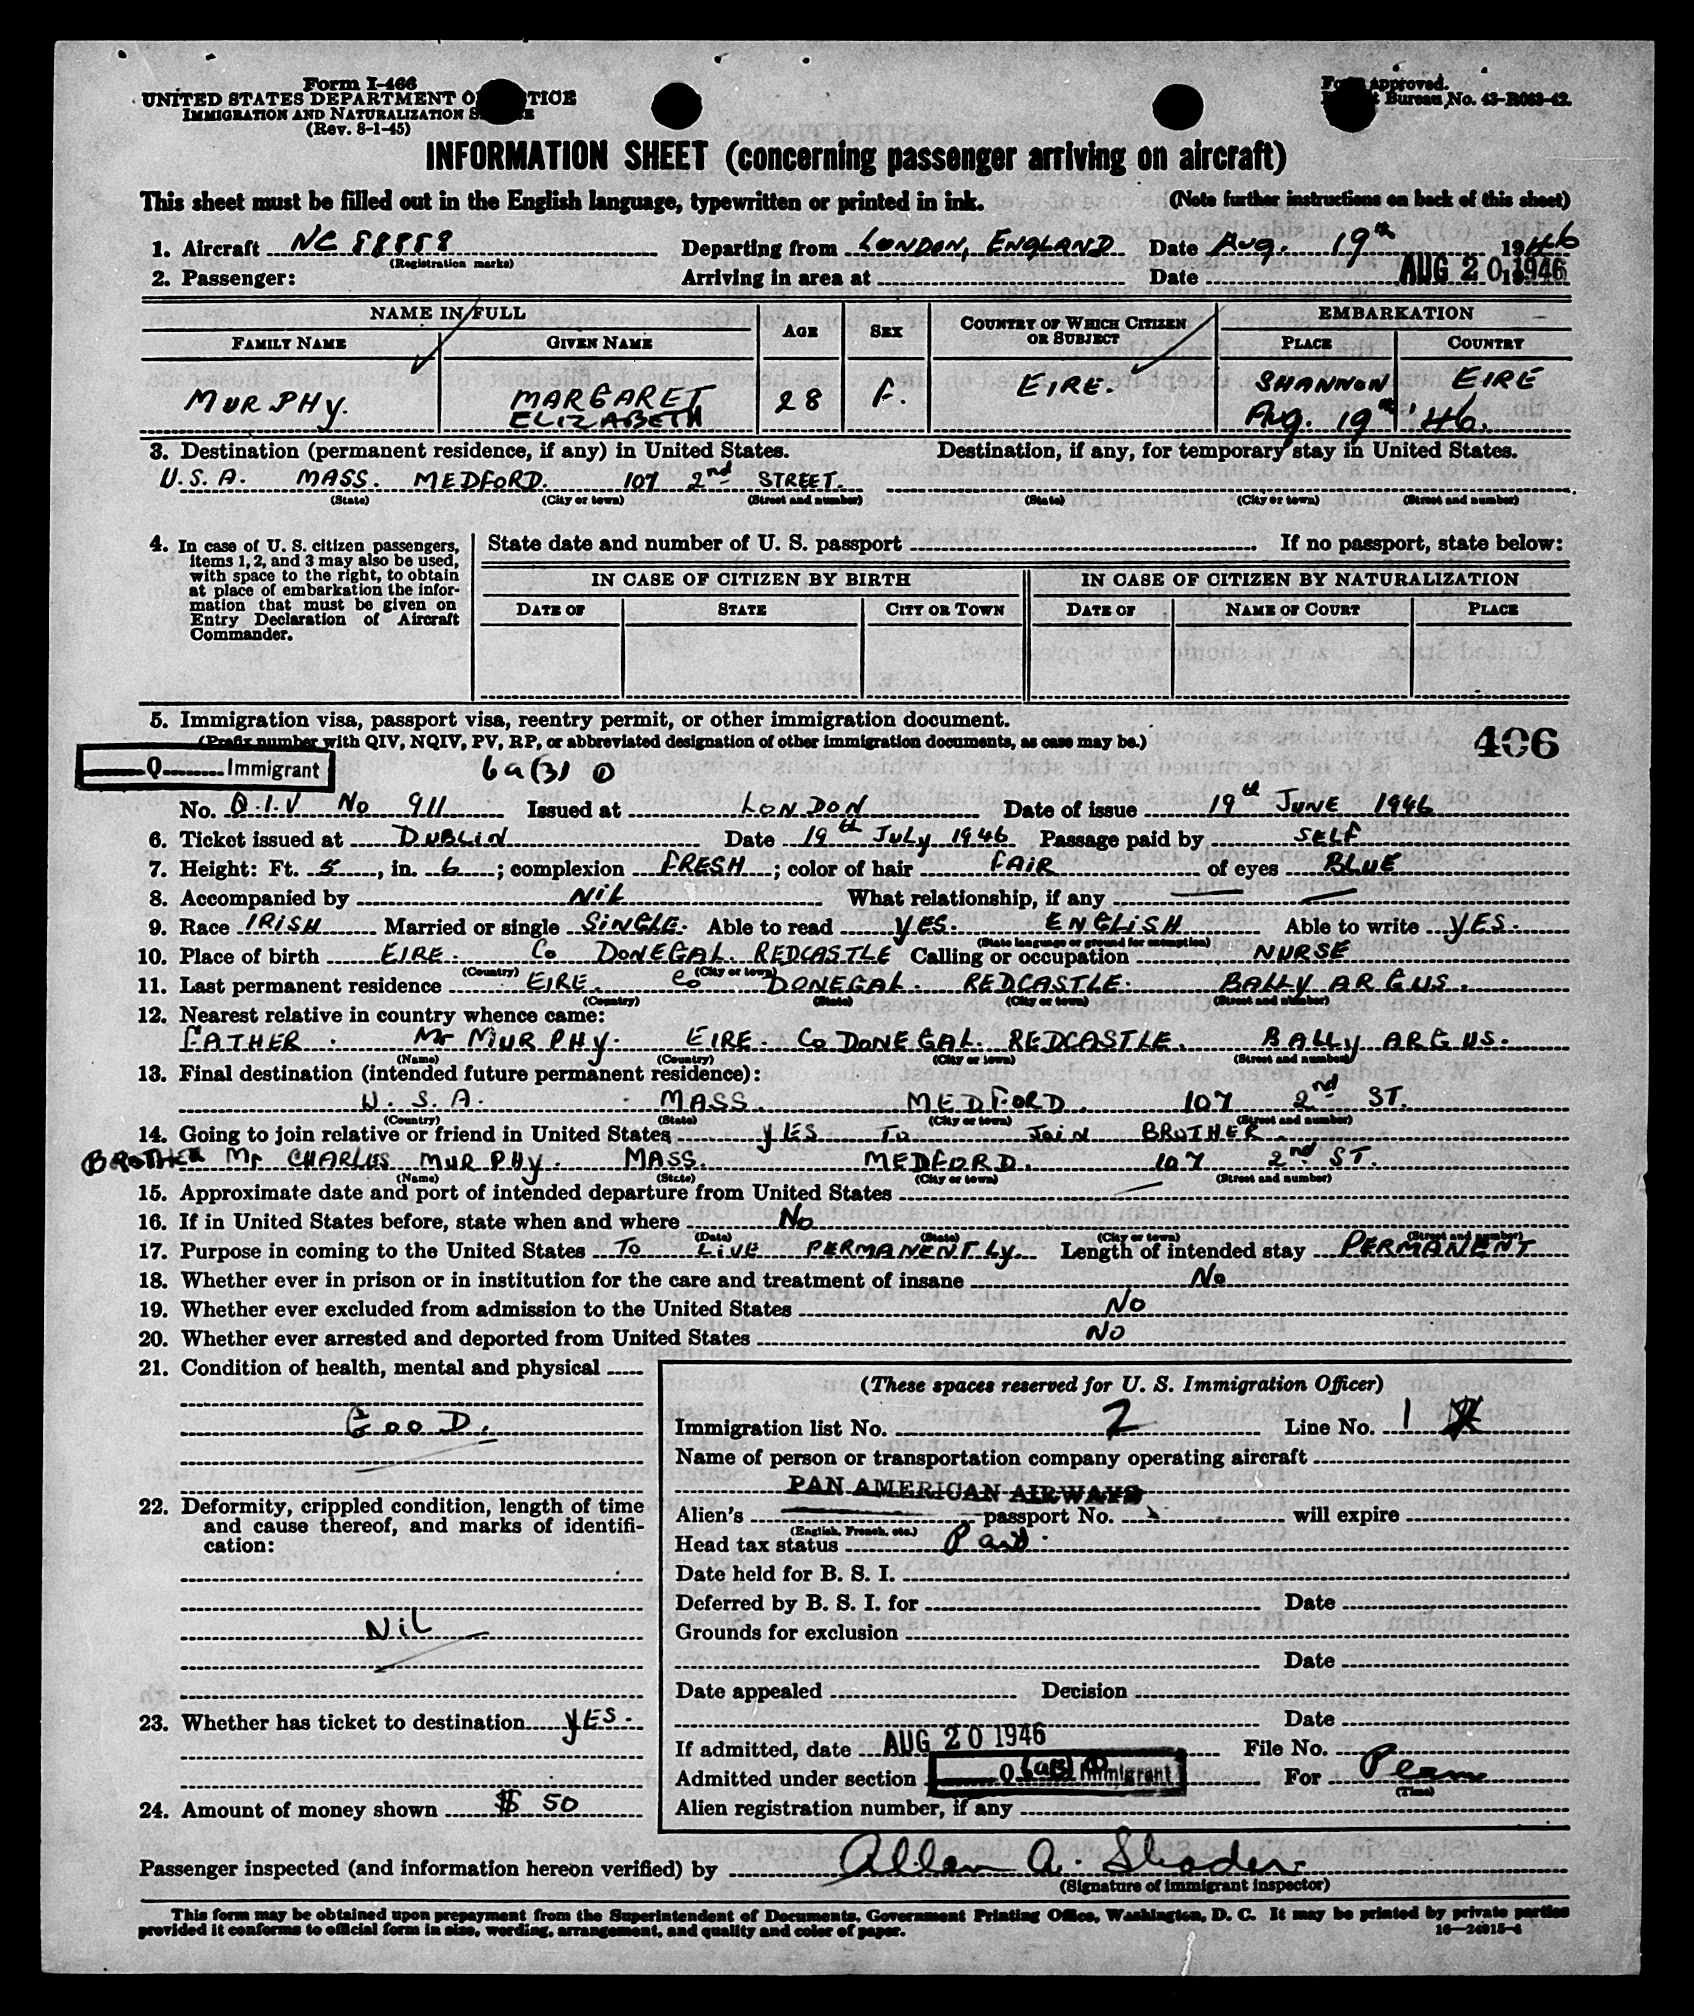 Form I-466
UNITED STATES DEPARTMENT O TICE
IMMIGRATION AND NATURALIZATION S E
(Rev. 8-1-45)
Fo Approved.
t Bureau No. 43-R063-42.
INFORMATION SHEET (concerning passenger arriving on aircraft)
This sheet must be filled out in the English language, typewritten or printed in ink. (Note further instructions on back of this sheet)
1. Aircraft NC 88858 Departing from LONDON, ENGLAND Date Aug. 19th 1946
(Registration marks)
2. Passenger: Arriving in area at Date AUG 20 1946
NAME IN FULL AGE SEX COUNTRY OF WHICH CITIZEN OR SUBJECT EMBARKATION
FAMILY NAME GIVEN NAME PLACE COUNTRY
MURPHY. MARGARET ELIZABETH 28 F. EIRE. SHANNON EIRE
Aug. 19th '46.
3. Destination (permanent residence, if any) in United States. Destination, if any, for temporary stay in United States.
U.S.A. MASS. MEDFORD. 107 2nd STREET.
(State) (City or town) (Street and number) (State) (City or town) (Street and number)
4. In case of U. S. citizen passengers, items 1, 2, and 3 may also be used, with space to the right, to obtain at place of embarkation the information that must be given on Entry Declaration of Aircraft Commander.
State date and number of U. S. passport If no passport, state below:
IN CASE OF CITIZEN BY BIRTH IN CASE OF CITIZEN BY NATURALIZATION
DATE OF STATE CITY OR TOWN DATE OF NAME OF COURT PLACE
5. Immigration visa, passport visa, reentry permit, or other immigration document.
(Prefix number with QIV, NQIV, PV, RP, or abbreviated designation of other immigration documents, as case may be.) 406
Q Immigrant 6a(3) ①
No. Q.I.V No 911 Issued at LONDON Date of issue 19th JUNE 1946
6. Ticket issued at DUBLIN Date 19th July 1946 Passage paid by SELF
7. Height: Ft. 5, in. 6; complexion FRESH; color of hair FAIR of eyes BLUE
8. Accompanied by NIL What relationship, if any —
9. Race IRISH Married or single SINGLE. Able to read YES. ENGLISH Able to write YES.
(State language or ground for exemption)
10. Place of birth EIRE. Co DONEGAL. REDCASTLE Calling or occupation NURSE
(Country) (City or town)
11. Last permanent residence EIRE. Co DONEGAL. REDCASTLE. BALLYARGUS.
(Country) (State) (City or town) (Street and number)
12. Nearest relative in country whence came:
FATHER. Mr MURPHY. EIRE. Co DONEGAL. REDCASTLE. BALLYARGUS.
(Name) (Country) (City or town) (Street and number)
13. Final destination (intended future permanent residence):
U.S.A. MASS. MEDFORD. 107 2nd ST.
(Country) (State) (City or town) (Street and number)
14. Going to join relative or friend in United States YES TO JOIN BROTHER.
BROTHER Mr CHARLES MURPHY. MASS. MEDFORD. 107 2nd ST.
(Name) (State) (City or town) (Street and number)
15. Approximate date and port of intended departure from United States —
16. If in United States before, state when and where No
(Date) (State) (City or town) (Street and number)
17. Purpose in coming to the United States To LIVE PERMANENTLY Length of intended stay PERMANENT
18. Whether ever in prison or in institution for the care and treatment of insane No
19. Whether ever excluded from admission to the United States No
20. Whether ever arrested and deported from United States No
21. Condition of health, mental and physical
GOOD.
22. Deformity, crippled condition, length of time and cause thereof, and marks of identification:
NIL
23. Whether has ticket to destination YES.
24. Amount of money shown $ 50
(These spaces reserved for U. S. Immigration Officer)
Immigration list No. 2 Line No. 1
Name of person or transportation company operating aircraft
PAN AMERICAN AIRWAYS
Alien's passport No. will expire
(English, French, etc.)
Head tax status Paid.
Date held for B. S. I.
Deferred by B. S. I. for Date
Grounds for exclusion
Date
Date appealed Decision
Date
If admitted, date AUG 20 1946 File No.
Admitted under section Q 6a(3) ① Immigrant For Perm
(Time)
Alien registration number, if any
Passenger inspected (and information hereon verified) by Allen A.
(Signature of immigrant inspector)
This form may be obtained upon prepayment from the Superintendent of Documents, Government Printing Office, Washington, D. C. It may be printed by private parties
provided it conforms to official form in size, wording, arrangement, and quality and color of paper. 16—24915-4